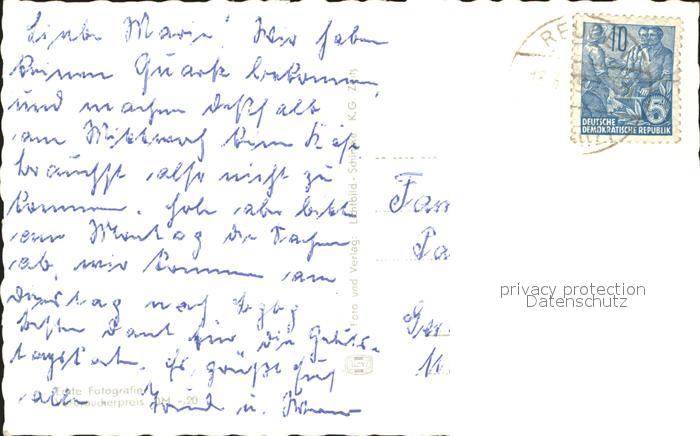 Liebe Marie! Wir haben
keinen Quark bekommen,
und machen deßhalb
am Mittwoch kein Käse
brauchst also nicht zu
kommen. hole aber bitte
am Montag die Sachen
ab, wir kommen am
Dienstag nach
besten Dank für die Geburts-
tagskarte. Es grüßt Euch
alle u.
Foto und Verlag: Lichtbild- K.G. Zeitz
Echte Fotografie
Verbraucherpreis DM -.20
10
5
DEUTSCHE
DEMOKRATISCHE REPUBLIK
privacy protection
Datenschutz